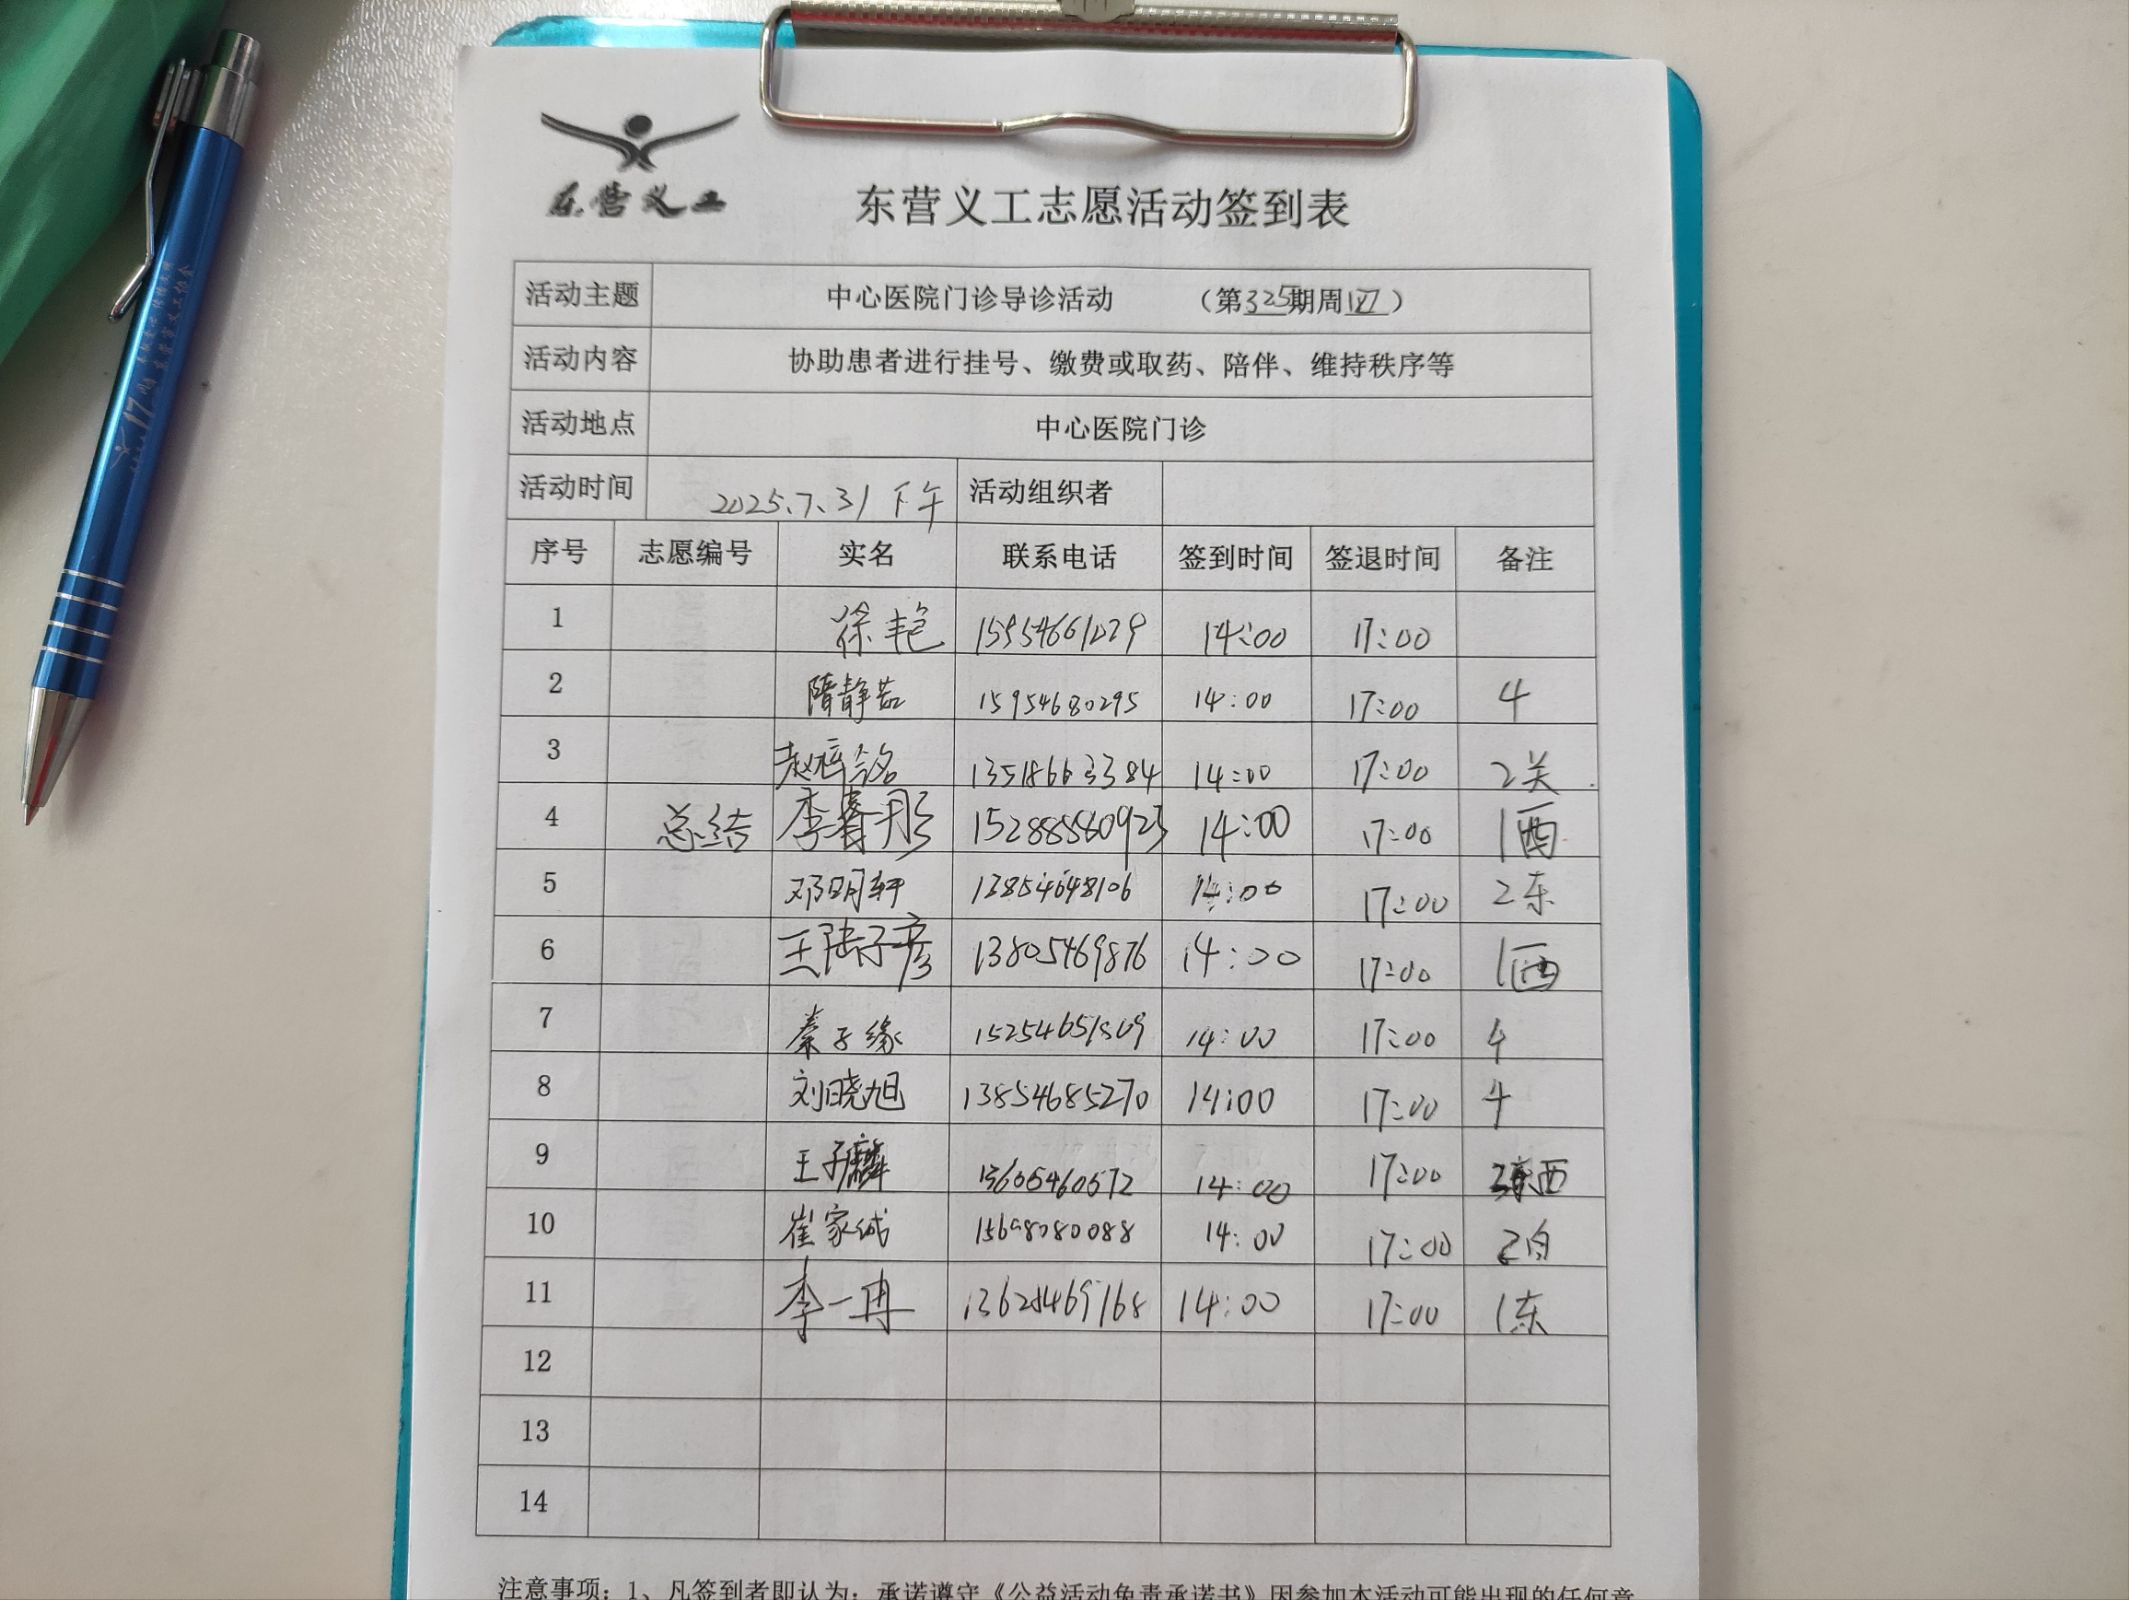 东营义工
东营义工志愿活动签到表
活动主题 中心医院门诊导诊活动 （第325期周四）
活动内容 协助患者进行挂号、缴费或取药、陪伴、维持秩序等
活动地点 中心医院门诊
活动时间 2025.7.31 下午 活动组织者
序号 志愿编号 实名 联系电话 签到时间 签退时间 备注
1 徐艳 15954661029 14:00 17:00
2 隋静茹 15954680295 14:00 17:00 4
3 赵梓铭 13518663384 14:00 17:00 2关
4 总结 李睿彤 15288580923 14:00 17:00 1西
5 邓明轩 13854648106 14:00 17:00 2东
6 王陆子彦 13805469876 14:00 17:00 1西
7 秦子缘 14:00 17:00 4
8 刘晓旭 13854685270 14:00 17:00 4
9 王子麟 13605460572 14:00 17:00 西
10 崔家诚 14:00 17:00 2自
11 李一冉 14:00 17:00 1东
12
13
14
注意事项：1、凡签到者即认为：承诺遵守《公益活动免责承诺书》因参加本活动可能出现的任何意
17周年